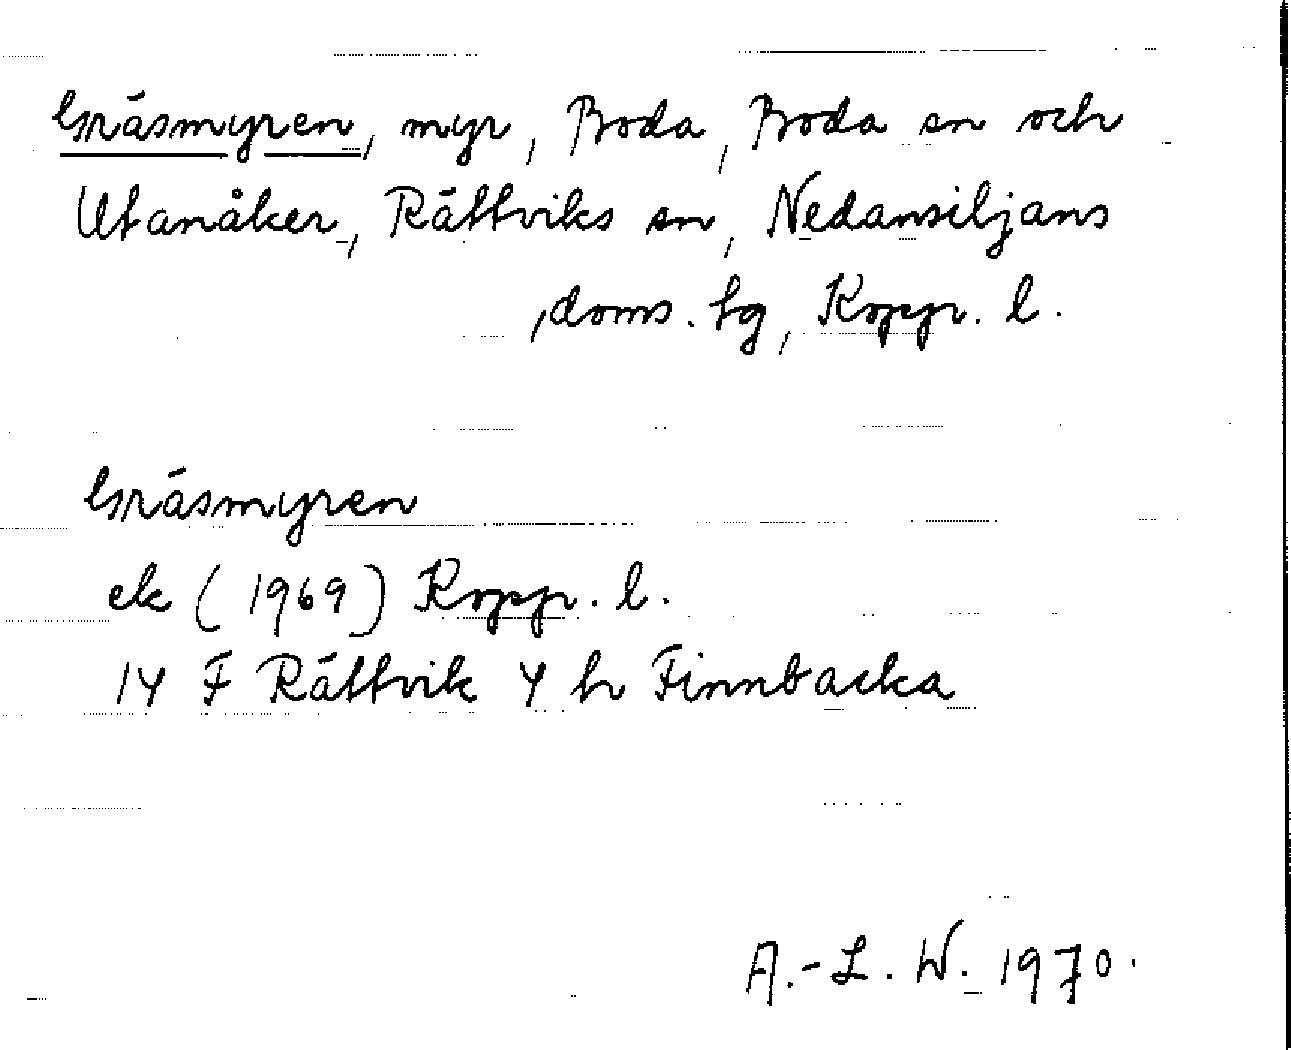 Gräsmyren, myr, Boda, Boda sn och
Utanåker, Rättviks sn, Nedansiljans
doms. tg, Kopp. l.
Gräsmyren
ek (1969) Kopp. l.
14 F Rättvik 4 h Finnbacka
A.-L. W. 1970.